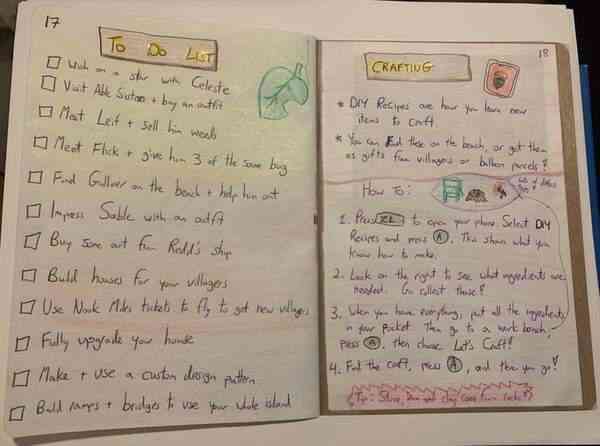 17
TO DO LIST
Wish on a star with Celeste
Visit Able Sisters + buy an outfit
Meet Leif + sell him weeds
Meet Flick + give him 3 of the same bug
Find Gulliver on the beach + help him out
Impress Sable with an outfit
Buy some art from Redd's ship
Build houses for your villagers
Use Nook Miles tickets to fly to get new villagers
Fully upgrade your house
Make + use a custom design pattern
Build ramps + bridges to use your whole island
18
CRAFTING
* DIY Recipes are how you learn new
items to craft.
* You can find these on the beach, or get them
as gifts from villagers or balloon parcels!
HOW TO:
lots of different
types!
1. Press ZL to open your phone. Select DIY
Recipes and press A. This shows what you
know how to make.
2. Look on the right to see what ingredients are
needed. Go collect those!
3. When you have everything, put all the ingredients
in your pocket. Then go to a work bench,
press A, then choose Let's Craft!
4. Find the craft, press A, and there you go!
Tip: Stone, iron and clay come from rocks!